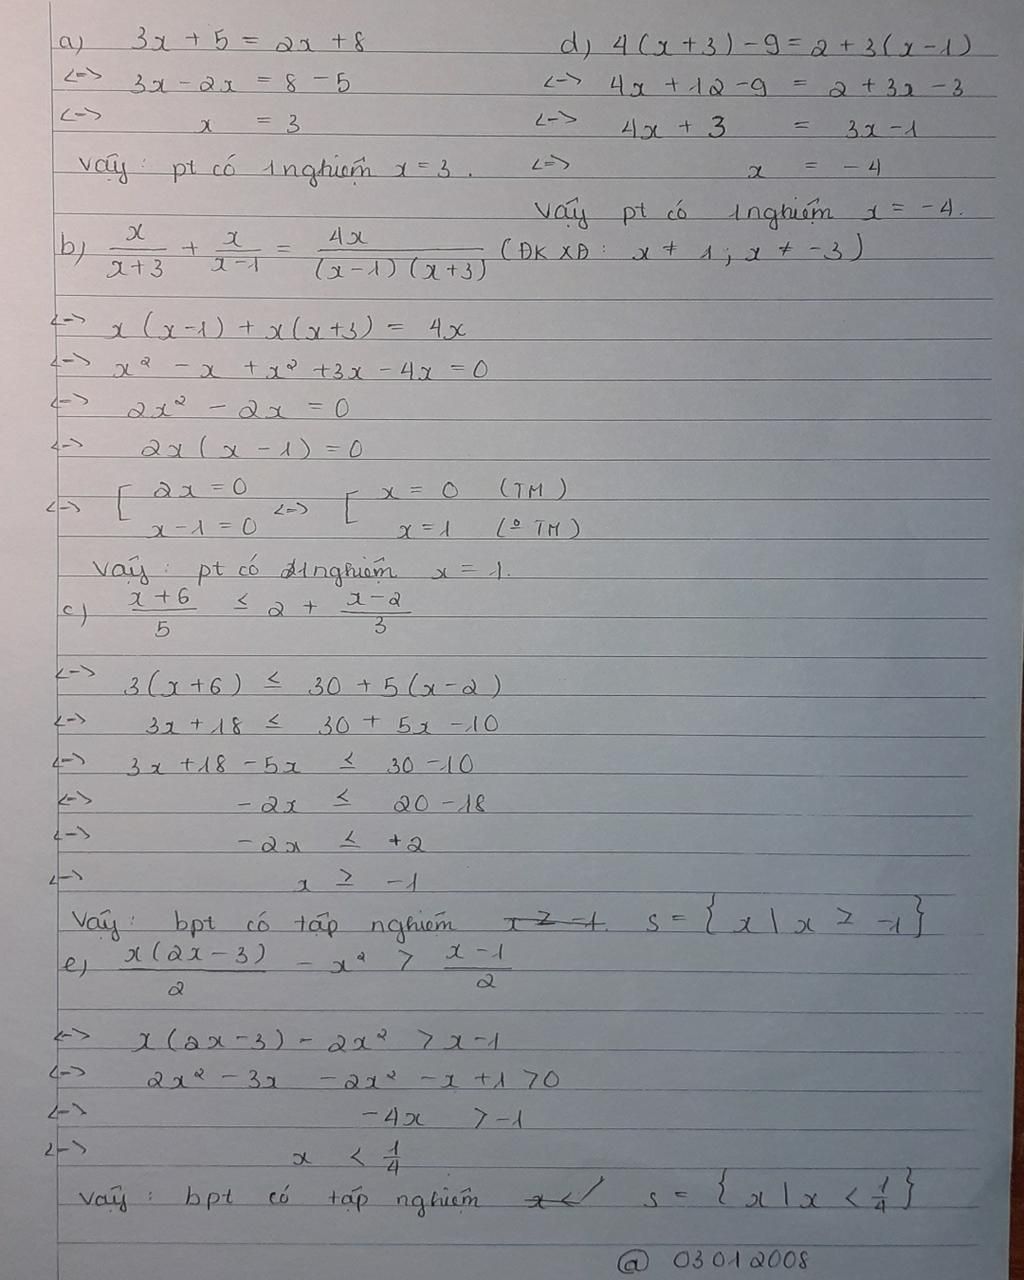 a) 3x + 5 = 2x + 8
<=> 3x - 2x = 8 - 5
<=> x = 3
Vậy: pt có 1 nghiệm x = 3.
d) 4(x + 3) - 9 = 2 + 3(x - 1)
<=> 4x + 12 - 9 = 2 + 3x - 3
<=> 4x + 3 = 3x - 1
<=> x = -4
Vậy pt có 1 nghiệm x = -4.
b) x/(x+3) + x/(x-1) = 4x/((x-1)(x+3)) (ĐKXĐ: x ≠ 1; x ≠ -3)
<=> x(x-1) + x(x+3) = 4x
<=> x² - x + x² + 3x - 4x = 0
<=> 2x² - 2x = 0
<=> 2x(x - 1) = 0
<=> [ 2x = 0 <=> [ x = 0 (TM)
x - 1 = 0 x = 1 (º TM)
Vậy: pt có 1 nghiệm x = 1.
c) (x+6)/5 ≤ 2 + (x-2)/3
<=> 3(x+6) ≤ 30 + 5(x-2)
<=> 3x + 18 ≤ 30 + 5x - 10
<=> 3x + 18 - 5x ≤ 30 - 10
<=> -2x ≤ 20 - 18
<=> -2x ≤ +2
<=> x ≥ -1
Vậy: bpt có tập nghiệm x ≥ -1. S = {x | x ≥ -1}
e) x(2x-3)/2 - x² > (x-1)/2
<=> x(2x-3) - 2x² > x - 1
<=> 2x² - 3x - 2x² - x + 1 > 0
<=> -4x > -1
<=> x < 1/4
Vậy: bpt có tập nghiệm x < S = {x | x < 1/4}
@ 03012008